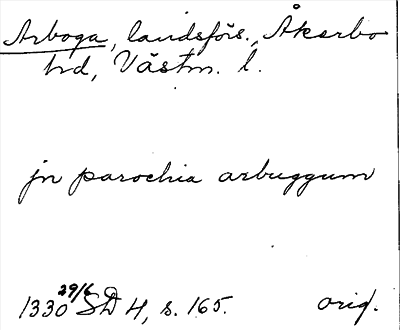 Arboga, landsförs., Åkerbo
hd, Västm. l.
jn parochia arbuggum
1330 29/6 SD 4, s. 165. orig.